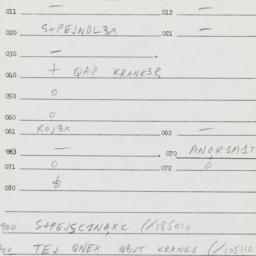 011 — 012 —
020 S+PEJNDL3X 021 —
030 —
040 + QAD KRANK3R
050 0
060 0
061 ROJ3X 062 —
063 — 070 ANOR1M1T
071 0 072 0
080 $
900 S+PEJSC1NAXC (//185010
TEJ QNEX QBUT KRANK3 (//105110